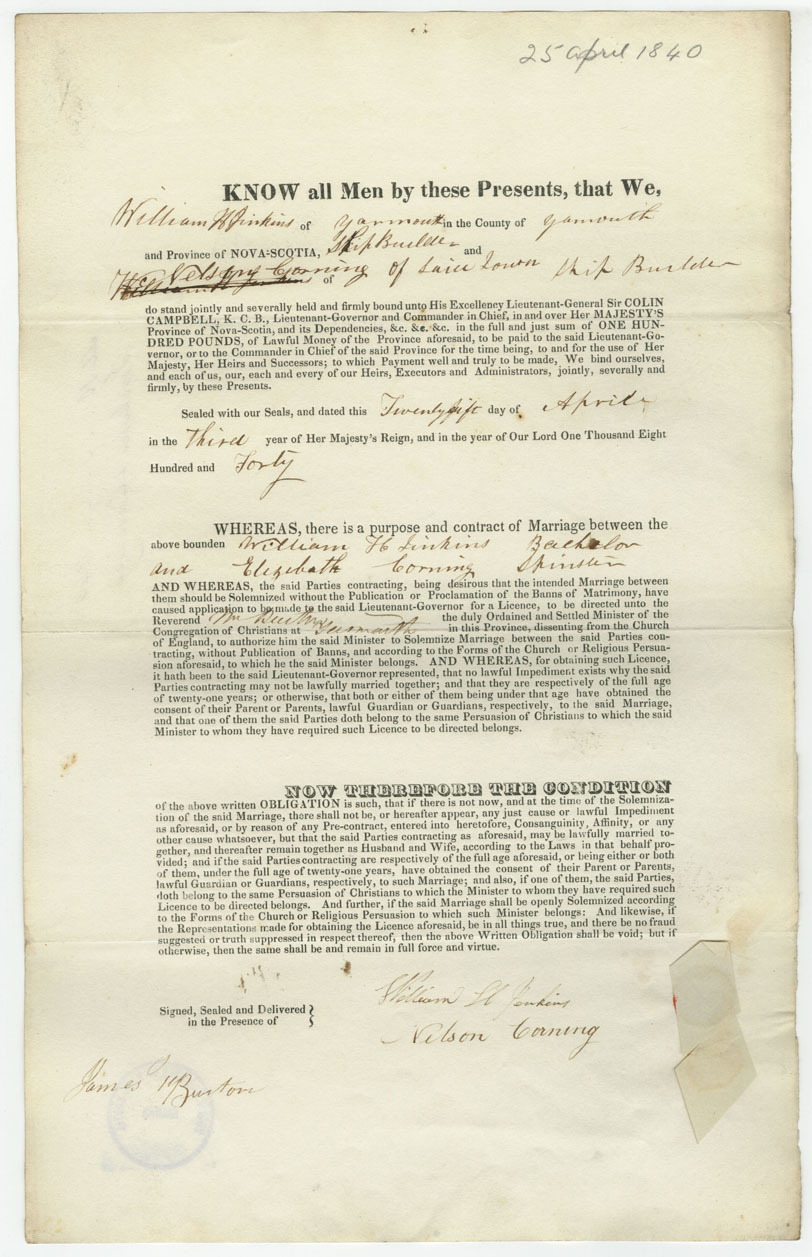 25 April 1840
KNOW all Men by these Presents, that We,
William H Jinkins of Yarmouth in the County of Yarmouth
and Province of NOVA-SCOTIA, Ship Builder and
Nelson Corning of Said Town Ship Builder
of
do stand jointly and severally held and firmly bound unto His Excellency Lieutenant-General Sir COLIN
CAMPBELL, K. C. B., Lieutenant-Governor and Commander in Chief, in and over Her MAJESTY'S
Province of Nova-Scotia, and its Dependencies, &c. &c. &c. in the full and just sum of ONE HUN-
DRED POUNDS, of Lawful Money of the Province aforesaid, to be paid to the said Lieutenant-Go-
vernor, or to the Commander in Chief of the said Province for the time being, to and for the use of Her
Majesty, Her Heirs and Successors; to which Payment well and truly to be made, We bind ourselves,
and each of us, our, each and every of our Heirs, Executors and Administrators, jointly, severally and
firmly, by these Presents.
Sealed with our Seals, and dated this Twentyfift day of April
in the Third year of Her Majesty's Reign, and in the year of Our Lord One Thousand Eight
Hundred and Forty
WHEREAS, there is a purpose and contract of Marriage between the
above bounden William H Jinkins Bachelor
and Elizebath Corning Spinster
AND WHEREAS, the said Parties contracting, being desirous that the intended Marriage between
them should be Solemnized without the Publication or Proclamation of the Banns of Matrimony, have
caused application to be made to the said Lieutenant-Governor for a Licence, to be directed unto the
Reverend Wm the duly Ordained and Settled Minister of the
Congregation of Christians at Yarmouth in this Province, dissenting from the Church
of England, to authorize him the said Minister to Solemnize Marriage between the said Parties con-
tracting, without Publication of Banns, and according to the Forms of the Church or Religious Persua-
sion aforesaid, to which he the said Minister belongs. AND WHEREAS, for obtaining such Licence,
it hath been to the said Lieutenant-Governor represented, that no lawful Impediment exists why the said
Parties contracting may not be lawfully married together; and that they are respectively of the full age
of twenty-one years; or otherwise, that both or either of them being under that age have obtained the
consent of their Parent or Parents, lawful Guardian or Guardians, respectively, to the said Marriage,
and that one of them the said Parties doth belong to the same Persuasion of Christians to which the said
Minister to whom they have required such Licence to be directed belongs.
NOW THEREFORE THE CONDITION
of the above written OBLIGATION is such, that if there is not now, and at the time of the Solemniza-
tion of the said Marriage, there shall not be, or hereafter appear, any just cause or lawful Impediment
as aforesaid, or by reason of any Pre-contract, entered into heretofore, Consanguinity, Affinity, or any
other cause whatsoever, but that the said Parties contracting as aforesaid, may be lawfully married to-
gether, and thereafter remain together as Husband and Wife, according to the Laws in that behalf pro-
vided; and if the said Parties contracting are respectively of the full age aforesaid, or being either or both
of them, under the full age of twenty-one years, have obtained the consent of their Parent or Parents,
lawful Guardian or Guardians, respectively, to such Marriage; and also, if one of them, the said Parties,
doth belong to the same Persuasion of Christians to which the Minister to whom they have required such
Licence to be directed belongs. And further, if the said Marriage shall be openly Solemnized according
to the Forms of the Church or Religious Persuasion to which such Minister belongs: And likewise, if
the Representations made for obtaining the Licence aforesaid, be in all things true, and there be no fraud
suggested or truth suppressed in respect thereof, then the above Written Obligation shall be void; but if
otherwise, then the same shall be and remain in full force and virtue.
Signed, Sealed and Delivered
in the Presence of
William H Jenkins
Nelson Corning
James Burton